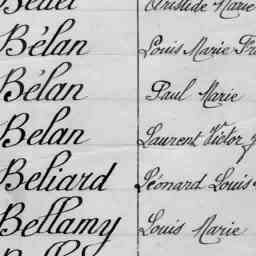 Aristide Marie
Bélan Louis Marie
Bélan Paul Marie
Belan Laurent Victor
Beliard Léonard Louis
Bellamy Louis Marie